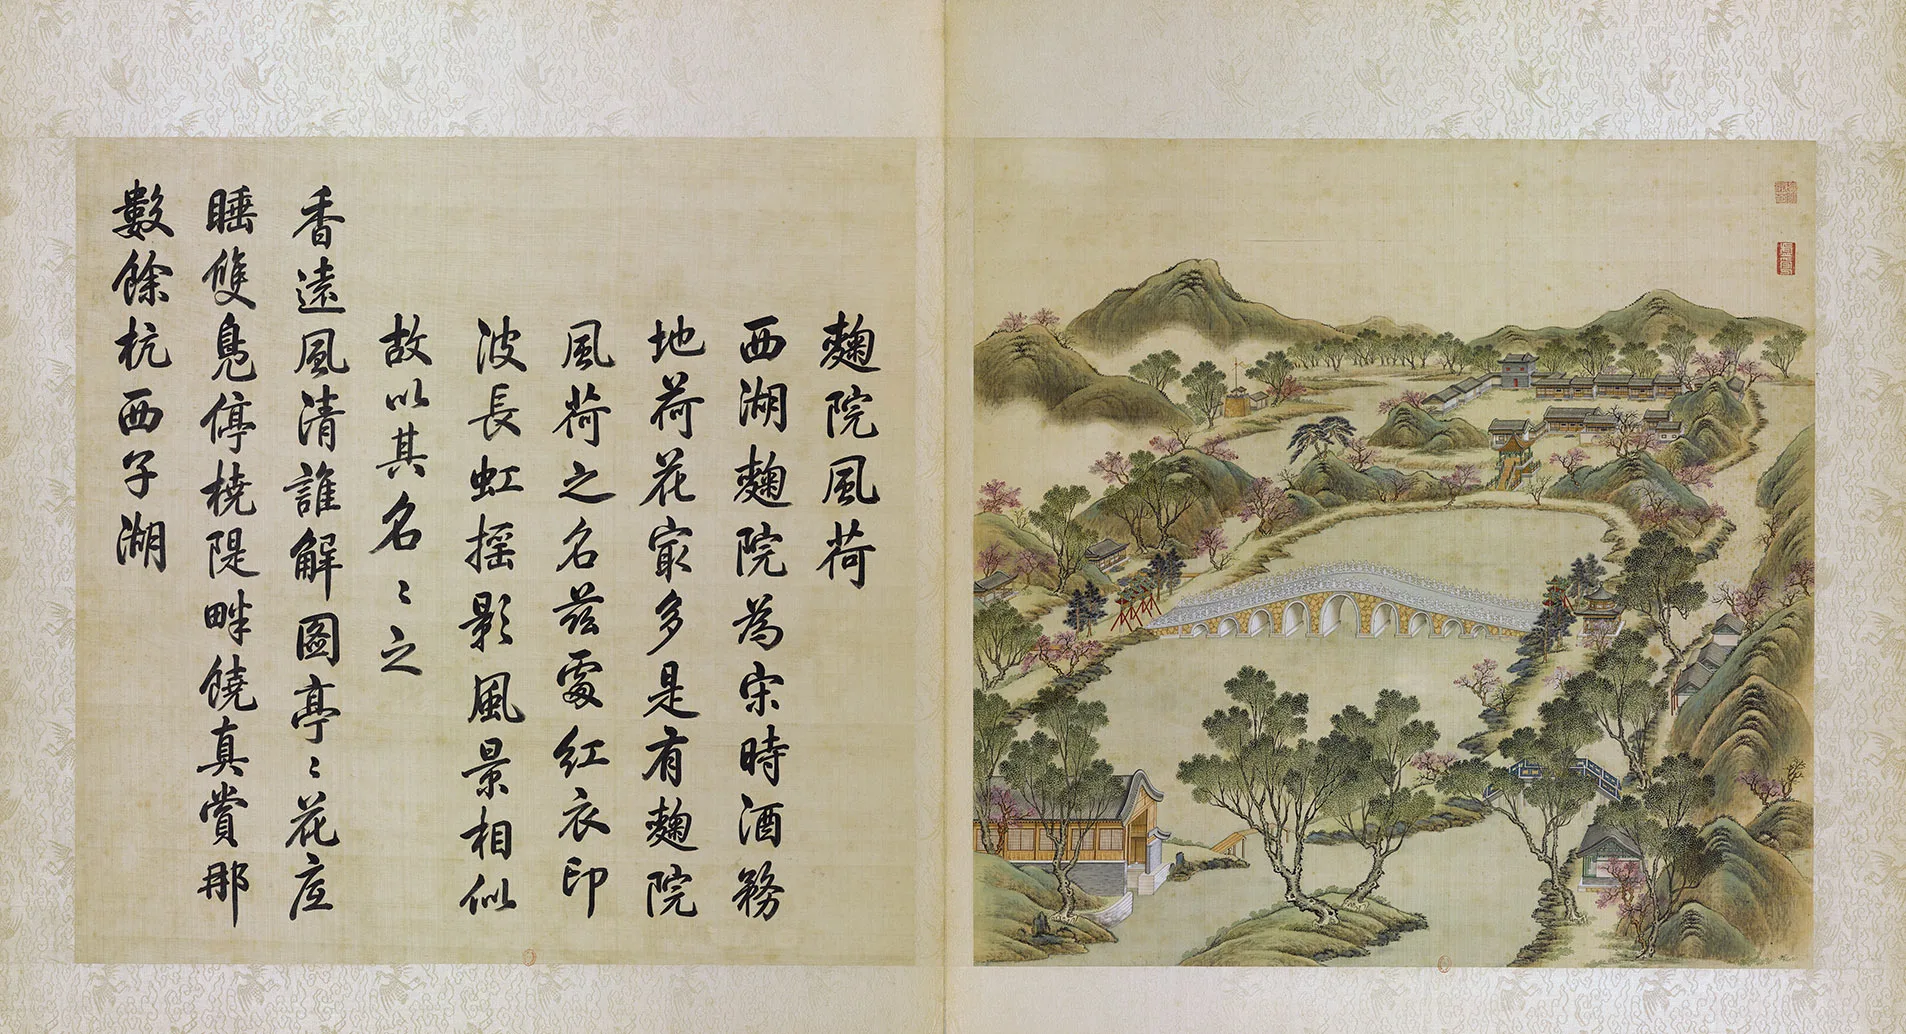 麯院風荷
西湖麯院為宋時酒務
地荷花冣多是有麯院
風荷之名茲處紅衣印
波長虹摇影風景相似
故以其名〻之
香遠風清誰解圖亭〻花底
睡雙鳧停橈隄畔饒真賞那
數餘杭西子湖